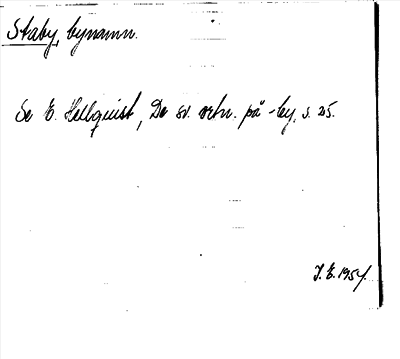 Staby, bynamn.
Se E. Hellquist, De sv. ortn. på -by, s. 25.
J. E. 1954.